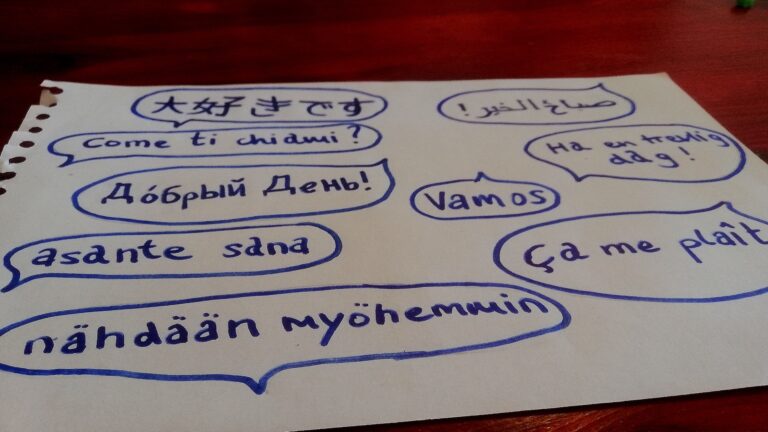 大好きです
صباح الخير !
Come ti chiami?
Ha en trevlig
dag!
Дóбрый День!
Vamos
asante sana
Ça me plaît
nähdään myöhemmin